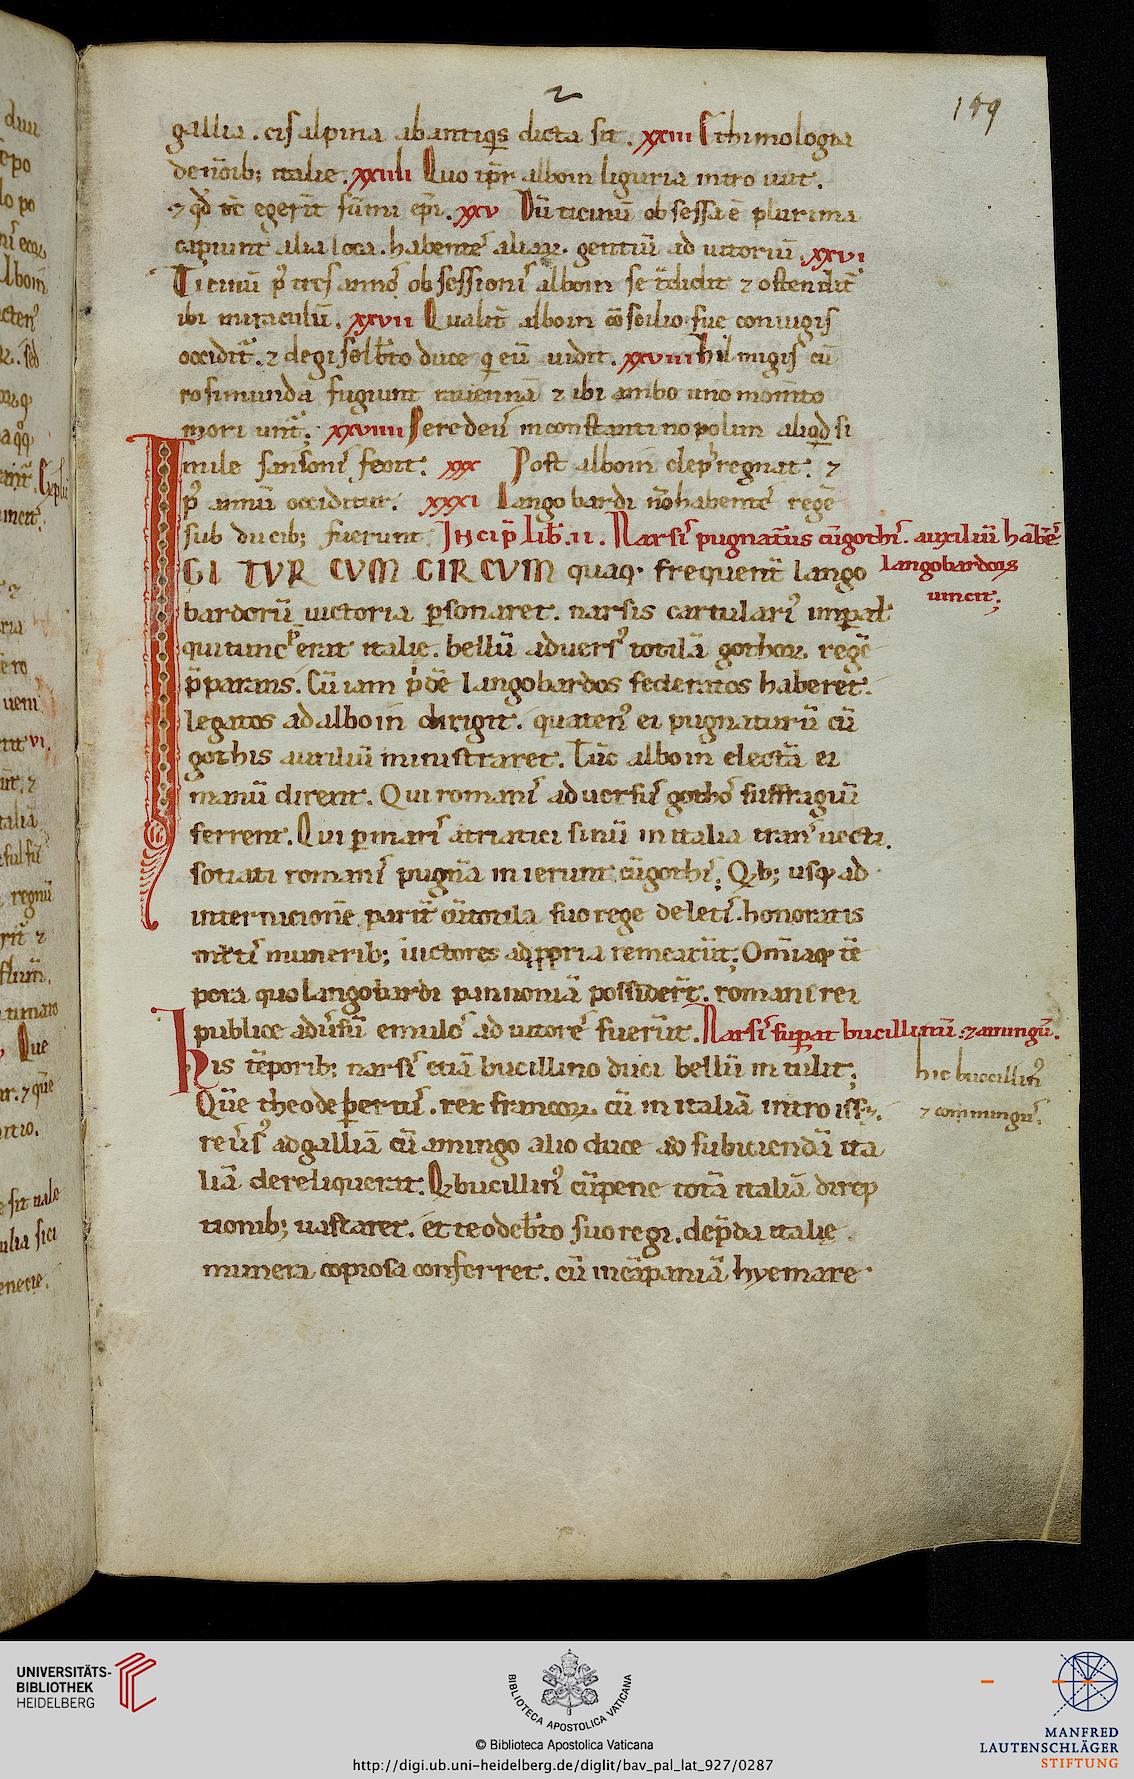 2
149
gallia. cisalpina abantiqis dicta sit. xxiii Ethimologia
denoib; italie. xxiiii Quo ipr alboin liguria intro iuit.
⁊ qd tc egerit sumi epi. xxv Dū ticinū obsessa ē plurima
capiunt alia loca. habentes aliar. gentiū ad iutoriū. xxvi
Ticinū p tres annos obsessionis alboin se tdidit ⁊ ostendit
ibi miraculū. xxvii Qualit alboin cōscilio sue coniugis
occidit. ⁊ de giselbto duce q eū uidit. xxviii hilmigis cū
rosimunda fugiunt rauennā ⁊ ibi ambo uno momto
mori unt; xxviiii Peredeus inconstantinopolim aliqd si
mile sansonis fecit. xxx Post alboin cleps regnat. ⁊
p annū occiditur. xxxi Langobardi nō habentes regē
sub ducib; fuerunt. Incip lib. ii. Narsis pugnatus cū gothis. auxiliū habēs
langobardois
uincit;
IGITUR CUM CIRCUM quaq. frequens lango
bardorū uictoria psonaret. narsis cartularius impial
qui tunc perat italie. bellū aduersus totilā gothor. regē
pparans. Cū iam pdē langobardos federatos haberet.
legatos ad alboin dirigit. quatenus ei pugnaturū cū
gothis auxiliū ministraret. Tūc alboin electā ei
manū direxit. Qui romanis aduersus gothos suffragiū
ferrent. Qui p maris atriatici sinū in italia transuecti.
sotiati romanis pugnā inierunt cū gothis; Qb; usq ad
internicionē parit cū totila suo rege deletis. honoratis
multis munerib; uictores ad ppria remearūt; Omiaq tē
pora quo langobardi pannoniā possidert. romane rei
publice aduersū emulos ad iutores fuerūt. Narsis supat bucillinū. ⁊ amingū.
His tēporib; narsis etiā bucillino duci bellū intulit;
hic buccillinus
Quē theodepertus. rex francor. cū in italiā introisset.
⁊ commingus.
reuersus ad galliā cū amingo alio duce ad subiciendā ita
liā dereliquerat. Q bucillinus cū pene totā italiā direp
tionib; uastaret. et teodebto suo regi. depda italie
munera copiosa conferret. cū in cāpaniā hyemare
UNIVERSITÄTS-
BIBLIOTHEK
HEIDELBERG
BIBLIOTECA APOSTOLICA VATICANA
© Biblioteca Apostolica Vaticana
http://digi.ub.uni-heidelberg.de/diglit/bav_pal_lat_927/0287
MANFRED
LAUTENSCHLÄGER
STIFTUNG